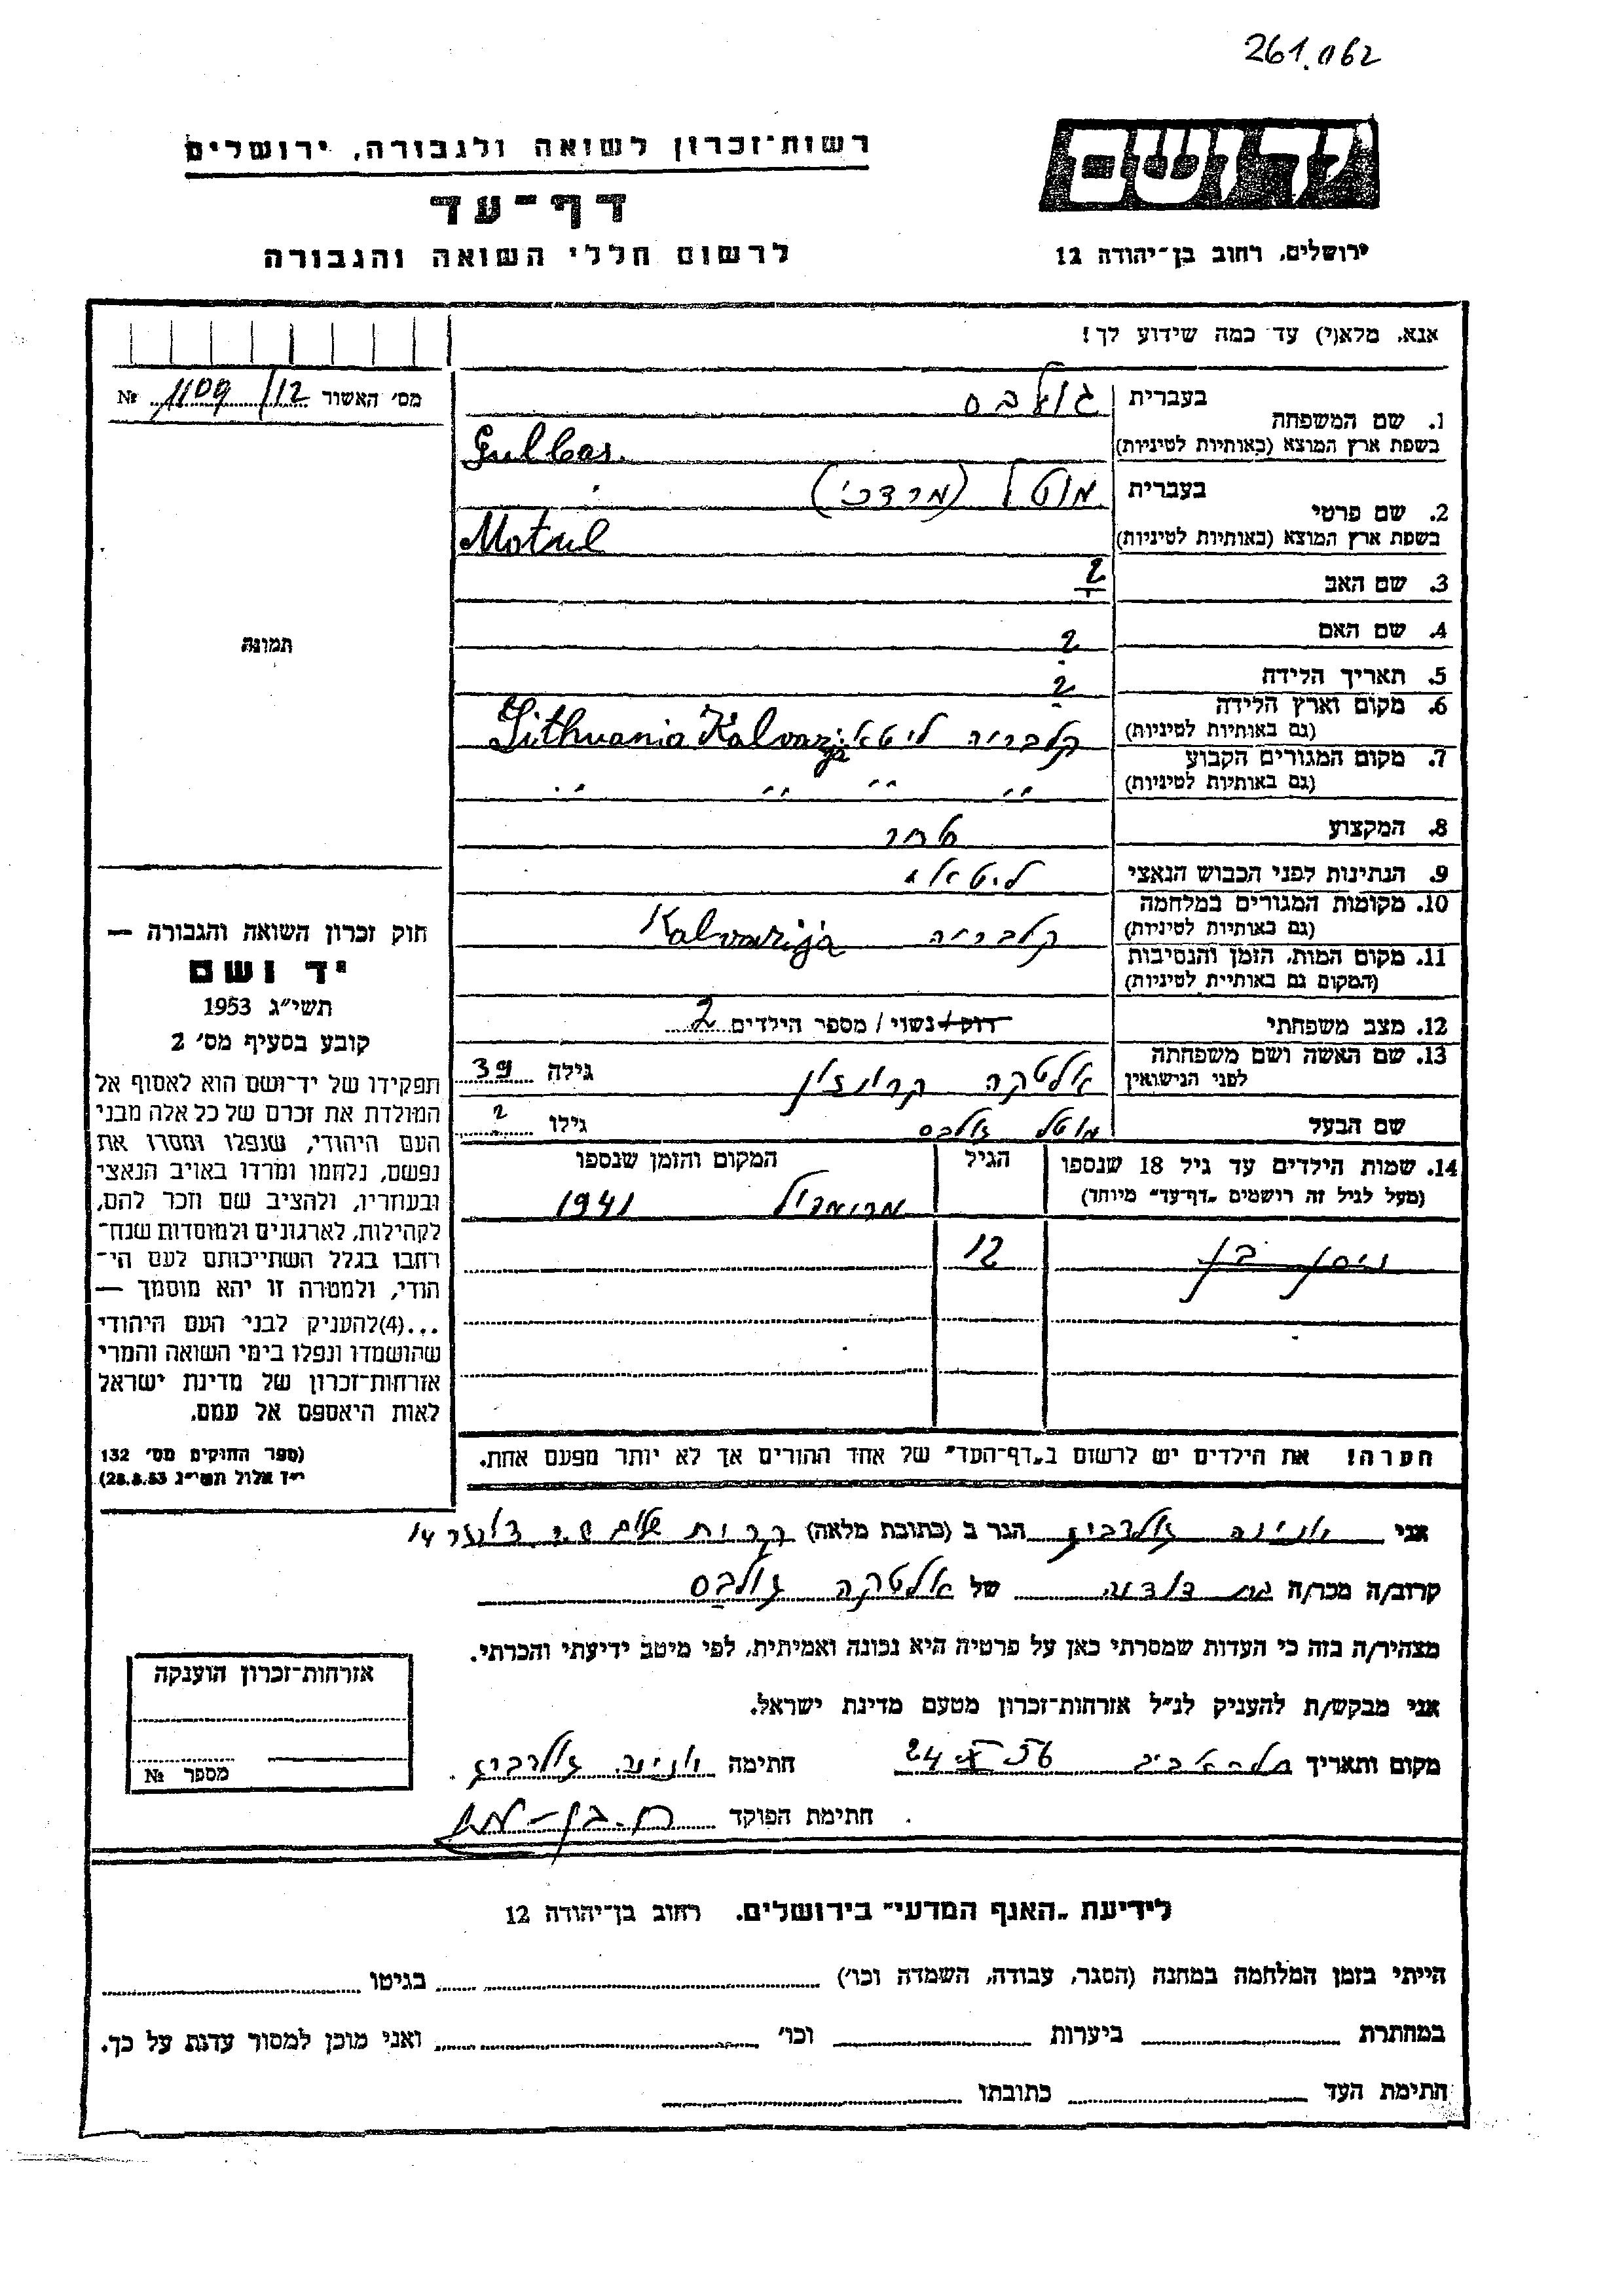 261.062
רשות־זכרון לשואה ולגבורה, ירושלים
יד ושם
דף־עד
לרשום חללי השואה והגבורה
ירושלים, רחוב בן־יהודה 12
אנא, מלא(י) עד כמה שידוע לך!
מס' האשור 1109/12 №
1. שם המשפחה
בעברית גולבס
בשפת ארץ המוצא (באותיות לטיניות) Gulbas
2. שם פרטי
בעברית מוטל (מרדכי)
בשפת ארץ המוצא (באותיות לטיניות) Motul
3. שם האב ?
4. שם האם ?
5. תאריך הלידה ?
6. מקום וארץ הלידה
(גם באותיות לטיניות) קלבריה ליטא Lithuania Kalvarija
7. מקום המגורים הקבוע
(גם באותיות לטיניות) " " " "
8. המקצוע סחר
9. הנתינות לפני הכבוש הנאצי ליטאי
10. מקומות המגורים במלחמה
(גם באותיות לטיניות) קלבריה Kalvarija
11. מקום המות, הזמן והנסיבות
(המקום גם באותיות לטיניות)
12. מצב משפחתי רוק / נשוי / מספר הילדים 2
13. שם האשה ושם משפחתה
לפני הנישואין אלטקה גילה 39
שם הבעל מוטל גולבס גילו ?
14. שמות הילדים עד גיל 18 שנספו
(מעל לגיל זה רושמים "דף־עד" מיוחד)
הגיל
המקום והזמן שנספו
מרימפול 1941
ניסן בן 12
הערה! את הילדים יש לרשום ב"דף־העד" של אחד ההורים אך לא יותר מפעם אחת.
תמונה
חוק זכרון השואה והגבורה —
יד ושם
תשי"ג 1953
קובע בסעיף מס' 2
תפקידו של יד־ושם הוא לאסוף אל
המולדת את זכרם של כל אלה מבני
העם היהודי, שנפלו ומסרו את
נפשם, נלחמו ומרדו באויב הנאצי
ובעוזריו, ולהציב שם וזכר להם,
לקהילות, לארגונים ולמוסדות שנח־
רבו בגלל השתייכותם לעם הי־
הודי, ולמטרה זו יהא מוסמך —
...(4) להעניק לבני העם היהודי
שהושמדו ונפלו בימי השואה והמרי
אזרחות־זכרון של מדינת ישראל
לאות היאספם אל עמם.
(ספר החוקים מס' 132
י"ד אלול תשי"ג 28.8.53)
אני הגר ב (כתובת מלאה) 14
קרוב/ה מכר/ה בת דודה של אלטקה גולבס
מצהיר/ה בזה כי העדות שמסרתי כאן על פרטיה היא נכונה ואמיתית, לפי מיטב ידיעתי והכרתי.
אני מבקש/ת להעניק לנ"ל אזרחות־זכרון מטעם מדינת ישראל.
מקום ותאריך תל־אביב 24 X 56 חתימה
חתימת הפוקד
אזרחות־זכרון הוענקה
מספר №
לידיעת "האגף המדעי" בירושלים. רחוב בן־יהודה 12
הייתי בזמן המלחמה במחנה (הסגר, עבודה, השמדה וכו') בגיטו
במחתרת ביערות וכו' ואני מוכן למסור עדות על כך.
חתימת העד כתובתו